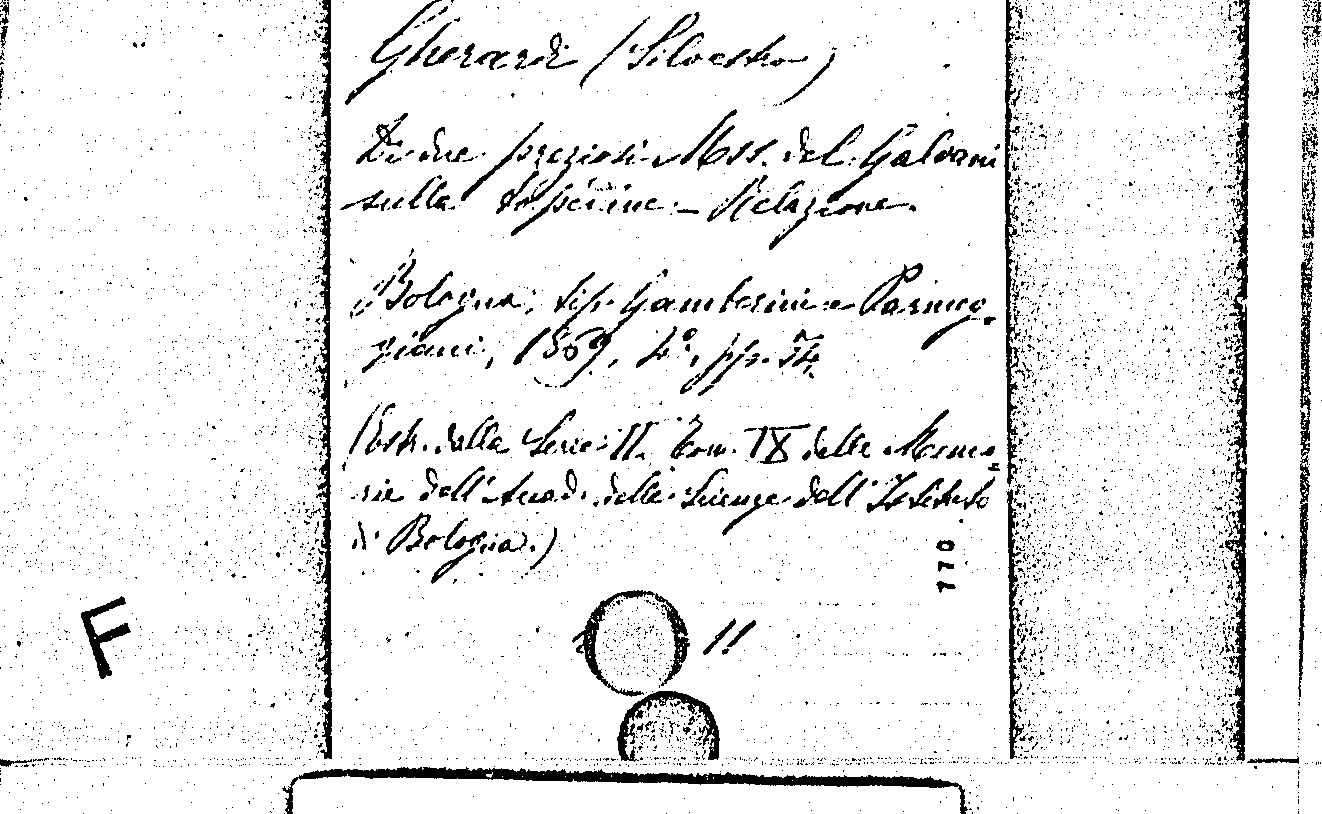 Gherardi (Silvestro)
Di due preziosi Mss. del Galvani
sulla Torpedine. - Relazione.
Bologna, tip. Gamberini e Parmeg-
giani, 1869, 4°, pp. 34.
(Estr. dalla Serie II. Tom. IX delle Memo-
rie dell'Accad. delle Scienze dell'Istituto
di Bologna.)
770
F
11